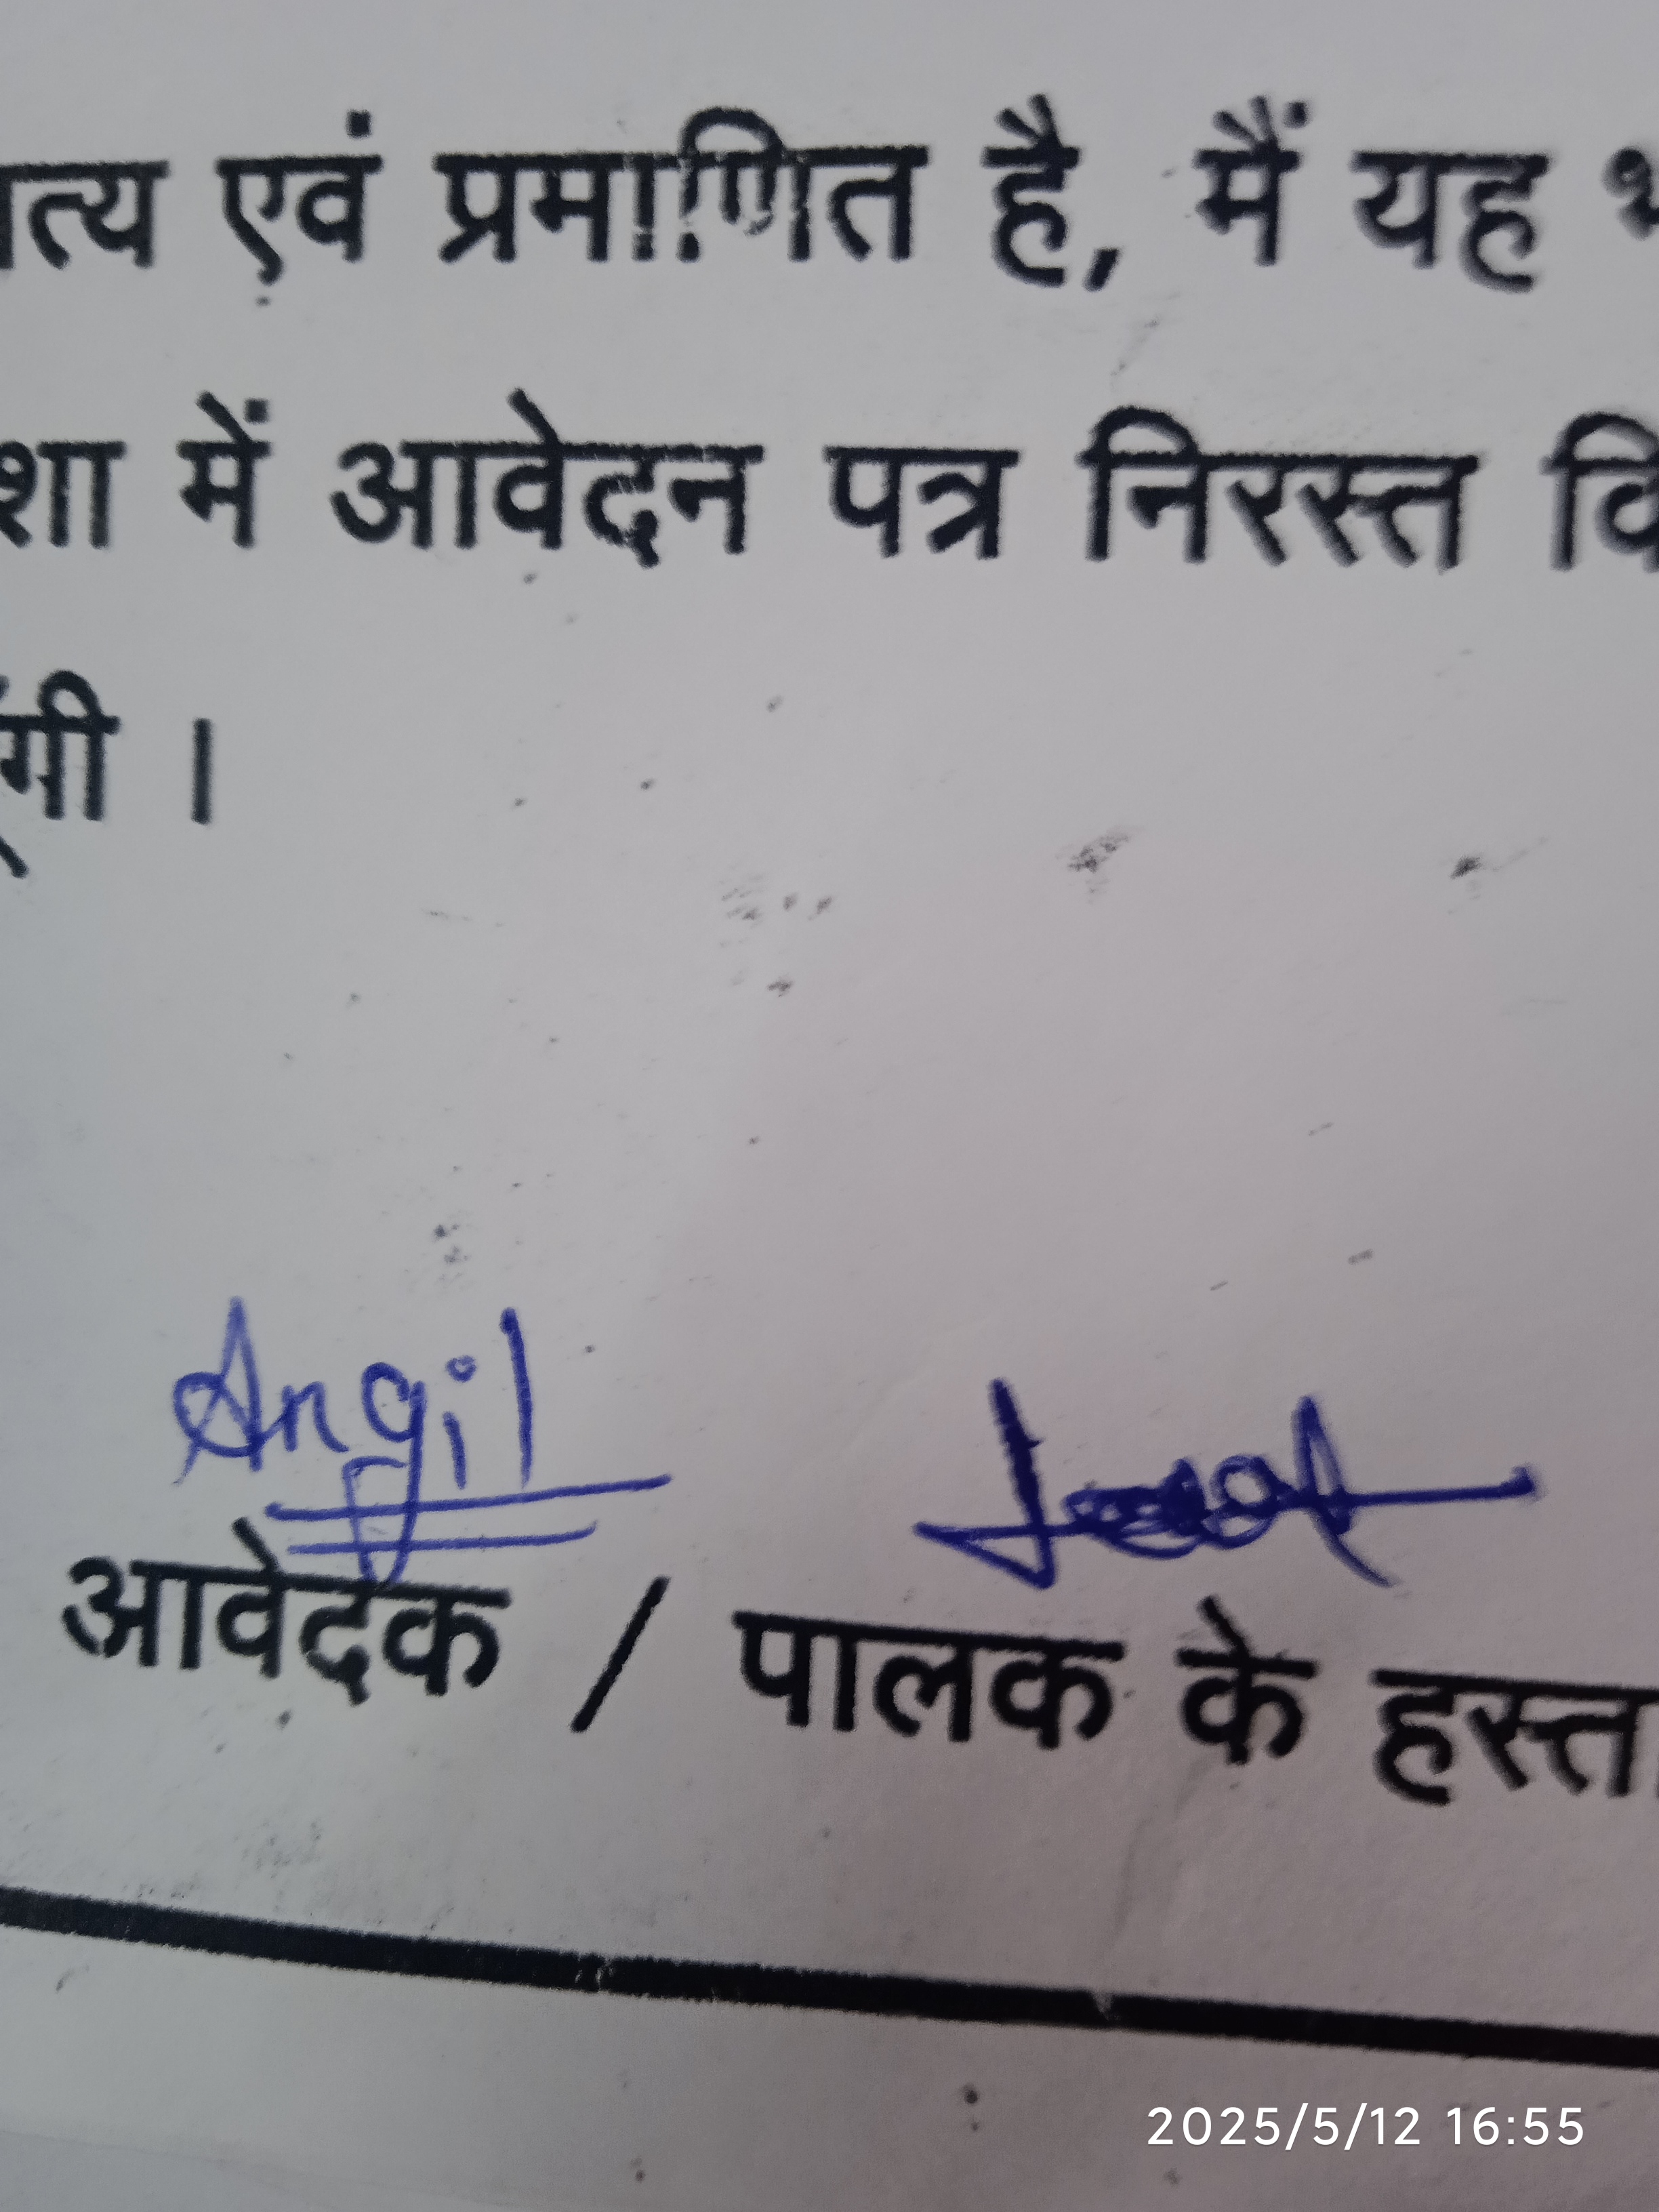 त्य एवं प्रमाणित है, मैं यह
शा में आवेदन पत्र निरस्त
गी ।
Angil
आवेदक / पालक के हस्ता
2025/5/12 16:55